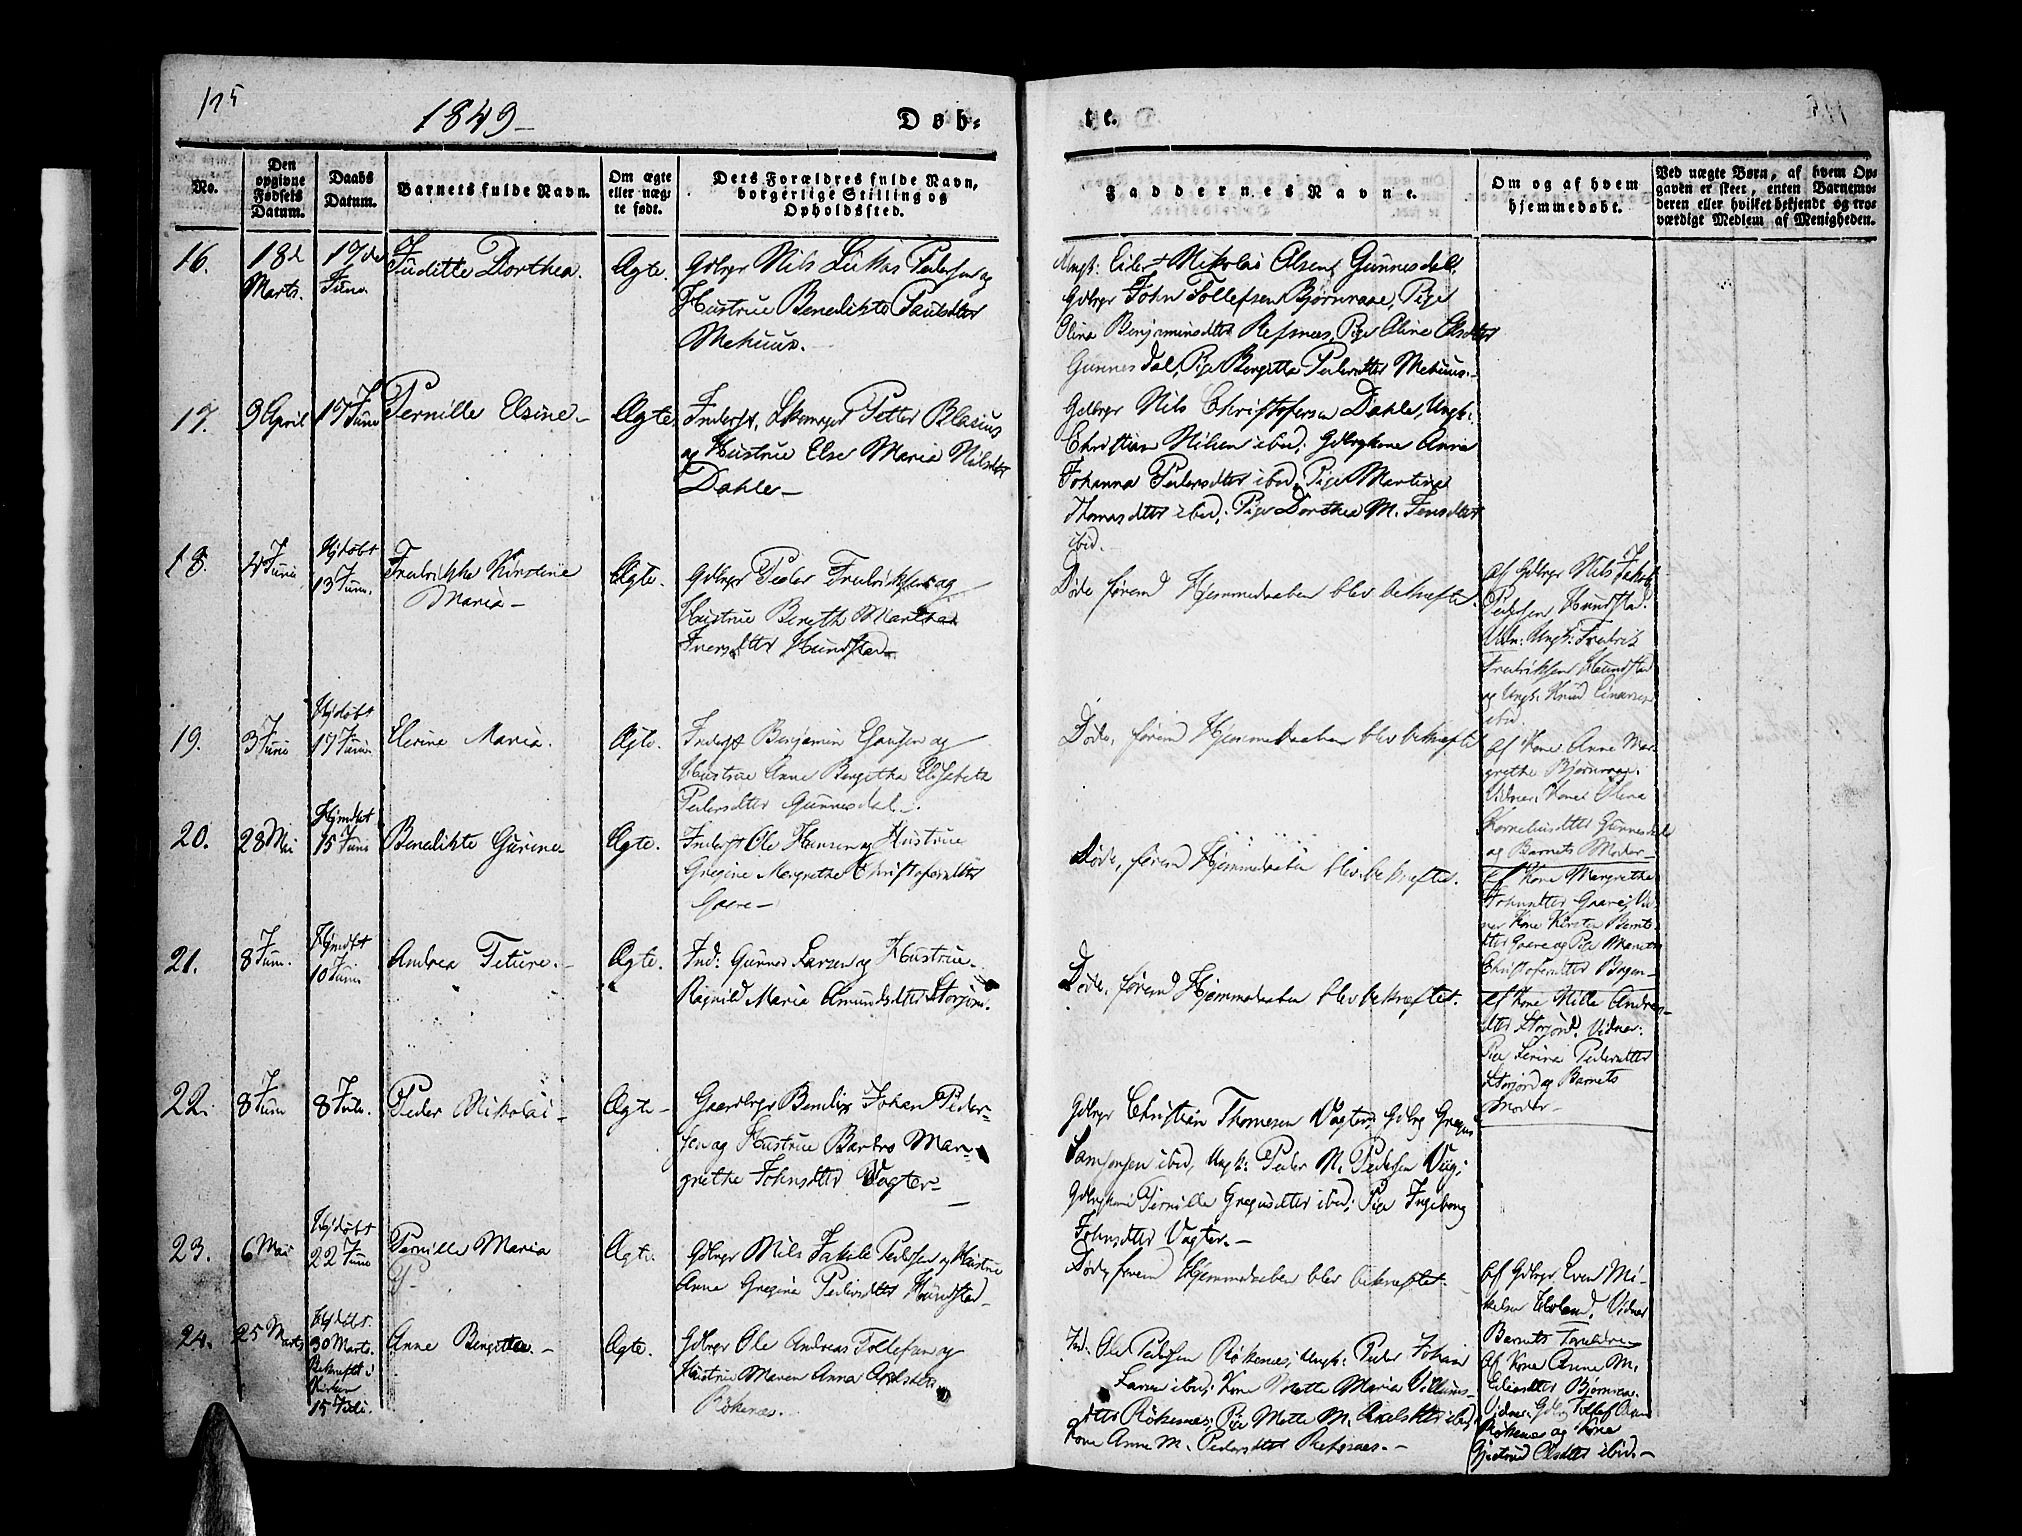 125
1849
Døb-
te.
No.
Den
opgivne
Fødsels
Datum.
Daabs
Datum.
Barnets fulde Navn.
Om ægte
eller uæg-
te født.
Dets Forældres fulde Navn,
borgerlige Stilling og
Opholdssted.
Faddernes Navne.
Om og af hvem
hjemmedøbt.
Ved uægte Børn, af hvem Op-
gaven er skeet, enten Barnemo-
deren eller hvilket bekjendt og tro-
værdigt Medlem af Menigheden.
16.
18d
Marts.
17de
Juni
Juditte Dorthea.
Ægte.
Gdbrgr Nils Lukas Pedersen og
Hustrue Benedikte Paulsdtter
Mehuus.
Ungk: Eilert Nikolai Olsen Gunnesdal,
Gdbrgr John Tollefsen Bjørnraae, Pige
Olina Benjaminsdtter Refsnæs, Pige Oline Olsdtter
Gunnesdal, Pige Bergitha Pedersdtter Mehuus.-
17.
9 April
17 Juni
Pernille Elsine-
Ægte
Inderst, Skomager Petter Blasius
og Hustrue Else Maria Nilsdtr
Dahle-
Gdbrgr Nils Christofersen Dahle, Ungk:
Christian Nilsen ibid; Gdbrgkone Anne
Johanna Pedersdtter ibid, Pige Martina
Thomasdtter ibid; Pige Dorthea M. Jensdtter
ibid.
18.
4 Juni
Hjdøbt
13 Juni.
Fredrikke Kirstine
Maria-
Ægte.
Gdbrgr Peder Fredriksen og
Hustrue Bereth Martha
Iversdtter Hundstad
Døde førend Hjemmedaaben blev bekræftet.
af Gdbrgr Nils Jakob
Pedersen Hundstad.
Vidn: Ungk: Fredrik
Fredriksen Hundstad
og Ungk: Knud Einersen
ibid.
19.
3 Juni
Hjdøbt
17 Juni.
Elerina Maria.
Ægte.
Inderst Benjamin Hansen og
Hustrue Anne Bergitha Elisabeth
Pedersdtter Gunnesdal.
Døde, førend Hjemmedaaben blev bekræftet
af Kone Anne Mar-
grethe Bjørnraae.
Vidner: Kone Olina
Korneliusdtter Gunnesdal
og Barnets Moder-
20.
28 Mai
Hjmdbt
15 Juni
Benedikte Gurine
Ægte.
Inderst Ole Hansen og Hustrue
Gregine Margrethe Christofersdtter
Gaare-
Døde, førend Hjemmedaaben blev bekræftet.
af Kone Margrethe
Johnsdtter Gaare, Vid-
ner Kone Kirsten Bernts-
dtter Gaare og Pige Marith
Christofersdtter Bogen-
21.
8 Juni.
Hjmdbt
10 Juni
Andrea Teture.-
Ægte.
Ind: Gunner Larsen og Hustrue
Ragnild Maria Amundsdtter Storjord.
Døde, førend Hjemmedaaben blev bekræftet.
af Kone Nille Andreas-
dtter Storjord. Vidner:
Pige Serina Pedersdtter
Storjord og Barnets
Moder-
22.
8 Juni
8 Juli.
Peder Nikolai-
Ægte-
Gaardbrgr Bendix Johan Peder-
sen og Hustrue Barbro Mar-
grethe Johnsdtter Vagter-
Gdbrgr Christian Thomesen Vagter, Gdbrg Gregus
Samsonsen ibid, Ungk: Peder N. Pedersen Viig;
Gdbrgkone Pernille Gregusdtter ibid; Pige Ingeborg
Johnsdtter Vagter.-
23.
6 Mai
Hjdøbt
22 Juni
Pernille Maria
Ægte.
Gdbrgr Nils Jakob Pedersen og Hustrue
Anne Gregine Pedersdtter Hundstad-
Døde førend Hjemmedaaben blev bekræftet.
af Gdbrgr Even Mi-
kelsen Hovland, Vidner
Barnets Forældre-
24.
25 Marts
30 Marts.
Bekræftet i
Kirken
15 Juli.
Anne Bergithe.-
Ægte.
Gdbrgr Ole Andreas Tollefsen og
Hustrue Maren Anna Axelsdtter
Røkenæs.
Ind. Ole Pedersen Røkenæs; Ungk: Peder Johan
Larsen ibid; Kone Mette Maria Villums-
dtter Røkenæs; Pige Mette M. Axelsdtter ibid,
Kone Anne M. Pedersdtter Refsnæs.-
af Kone Anne M.
Eliasdtter Bjørnraa.
Vidner: Gdbrg Tollef
Røkenæs og Kone
Gjertrud Olsdtter ibid.-